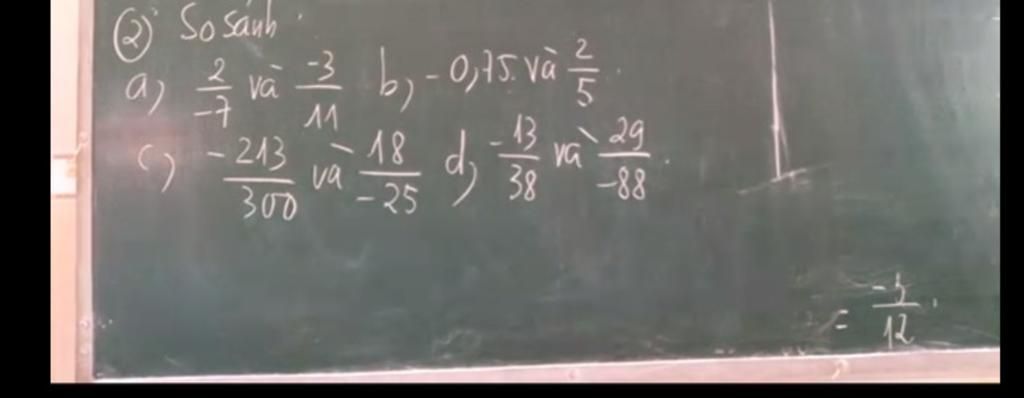 ② So sánh.
a, 2/-7 và -3/11 b, -0,75 và 2/5.
c) -213/300 và 18/-25 d, -13/38 và 29/-88.
= -5/12.